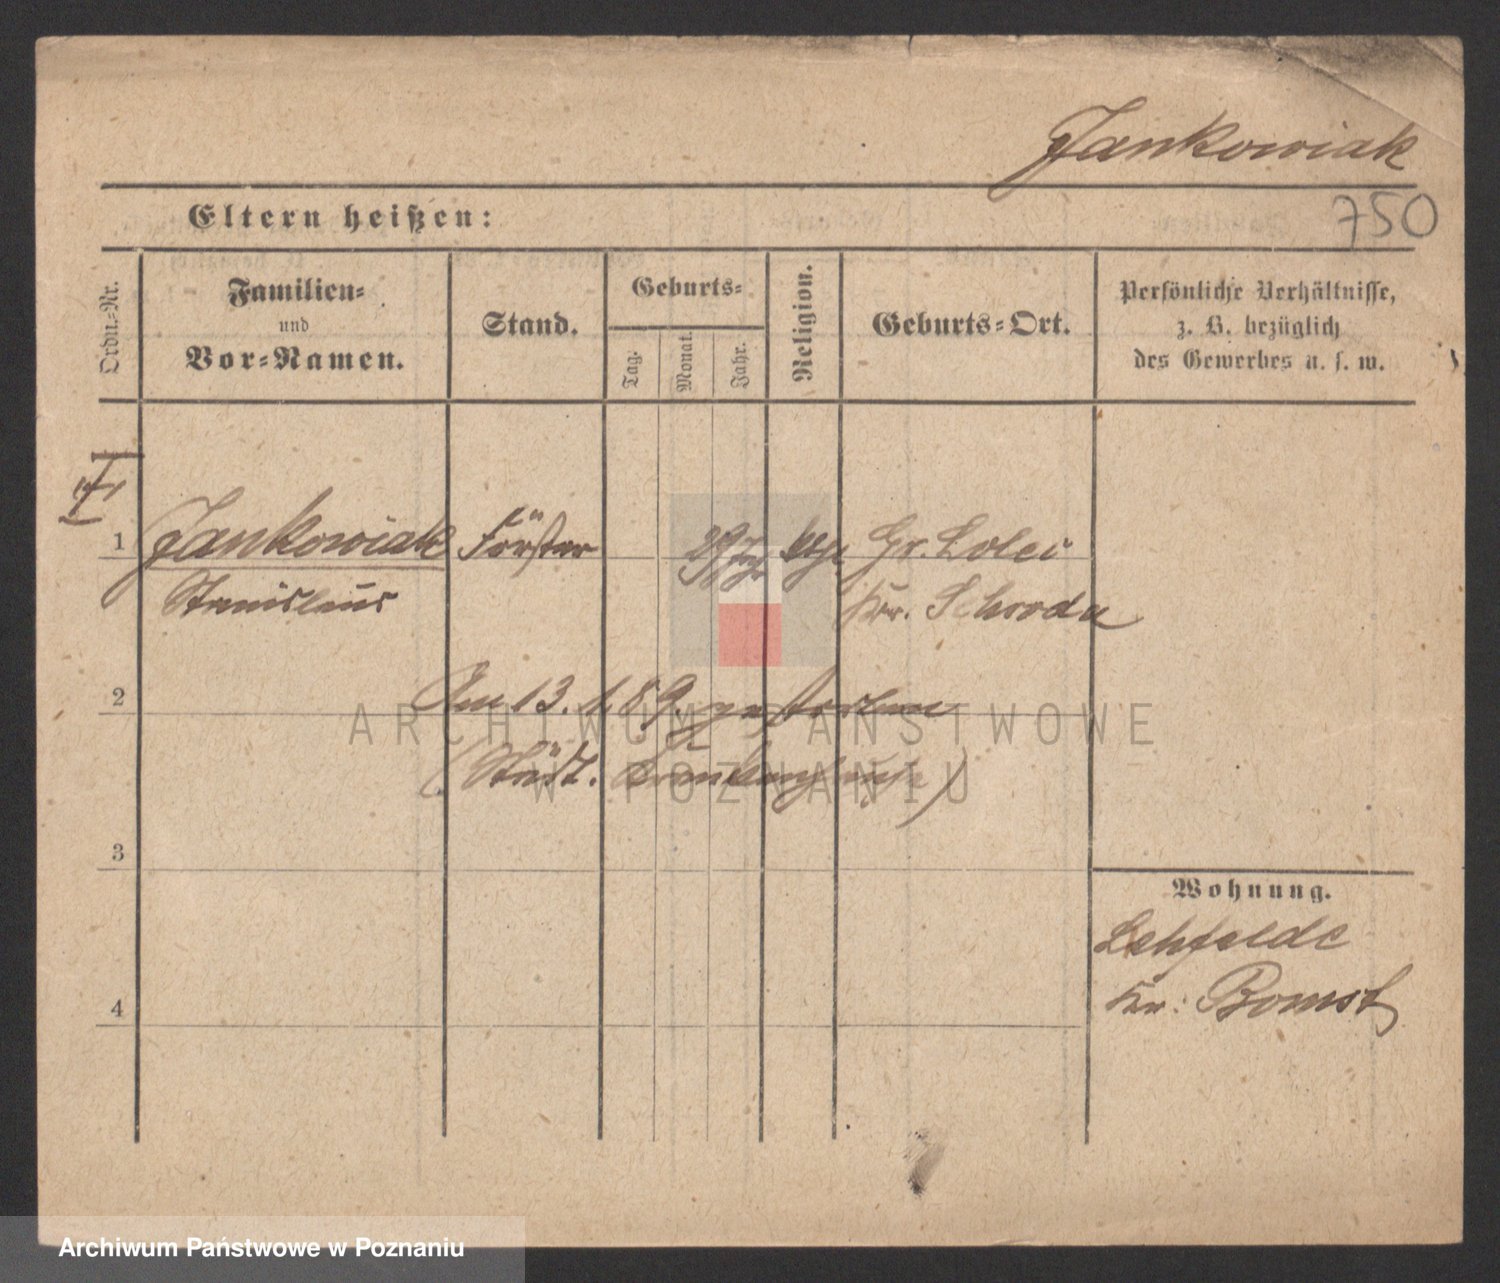 Jankowiak
750
Eltern heißen:
Ordn.-Nr.
Familien-
und
Vor-Namen.
Stand.
Geburts-
Tag.
Monat.
Jahr.
Religion.
Geburts-Ort.
Persönliche Verhältnisse,
z. B. bezüglich
des Gewerbes u. s. w.
1
Jankowiak Förster 29 J. Gr.
Stanislaus Kr. Schroda
2
Am 13. 1. 89. gestorben
(Städt. Krankenhause)
3
4
Wohnung.
Lehfelde
Kr. Bomst
ARCHIWUM PAŃSTWOWE
W POZNANIU
Archiwum Państwowe w Poznaniu